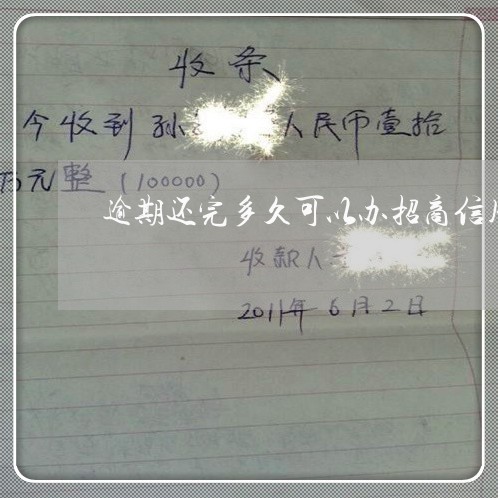 收条
今收到孙 人民币壹拾
万元整(100000)
逾期还完多久可以办招商信
收款人
2011年6月2日